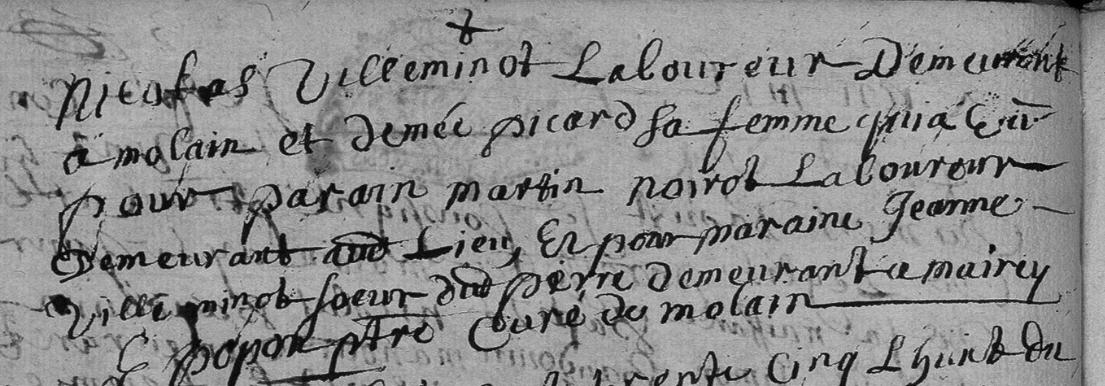 Nicolas Villeminot Laboureur Demeurant
a molain et demée picard sa femme qui a Eu
pour parain martin noirot Laboureur
Demeurant aud Lieu, Et pour maraine Jeanne
Ville minot soeur dud pierre demeurant a mairey
C popon ptre Curé de molain
trente Cinq L huit du